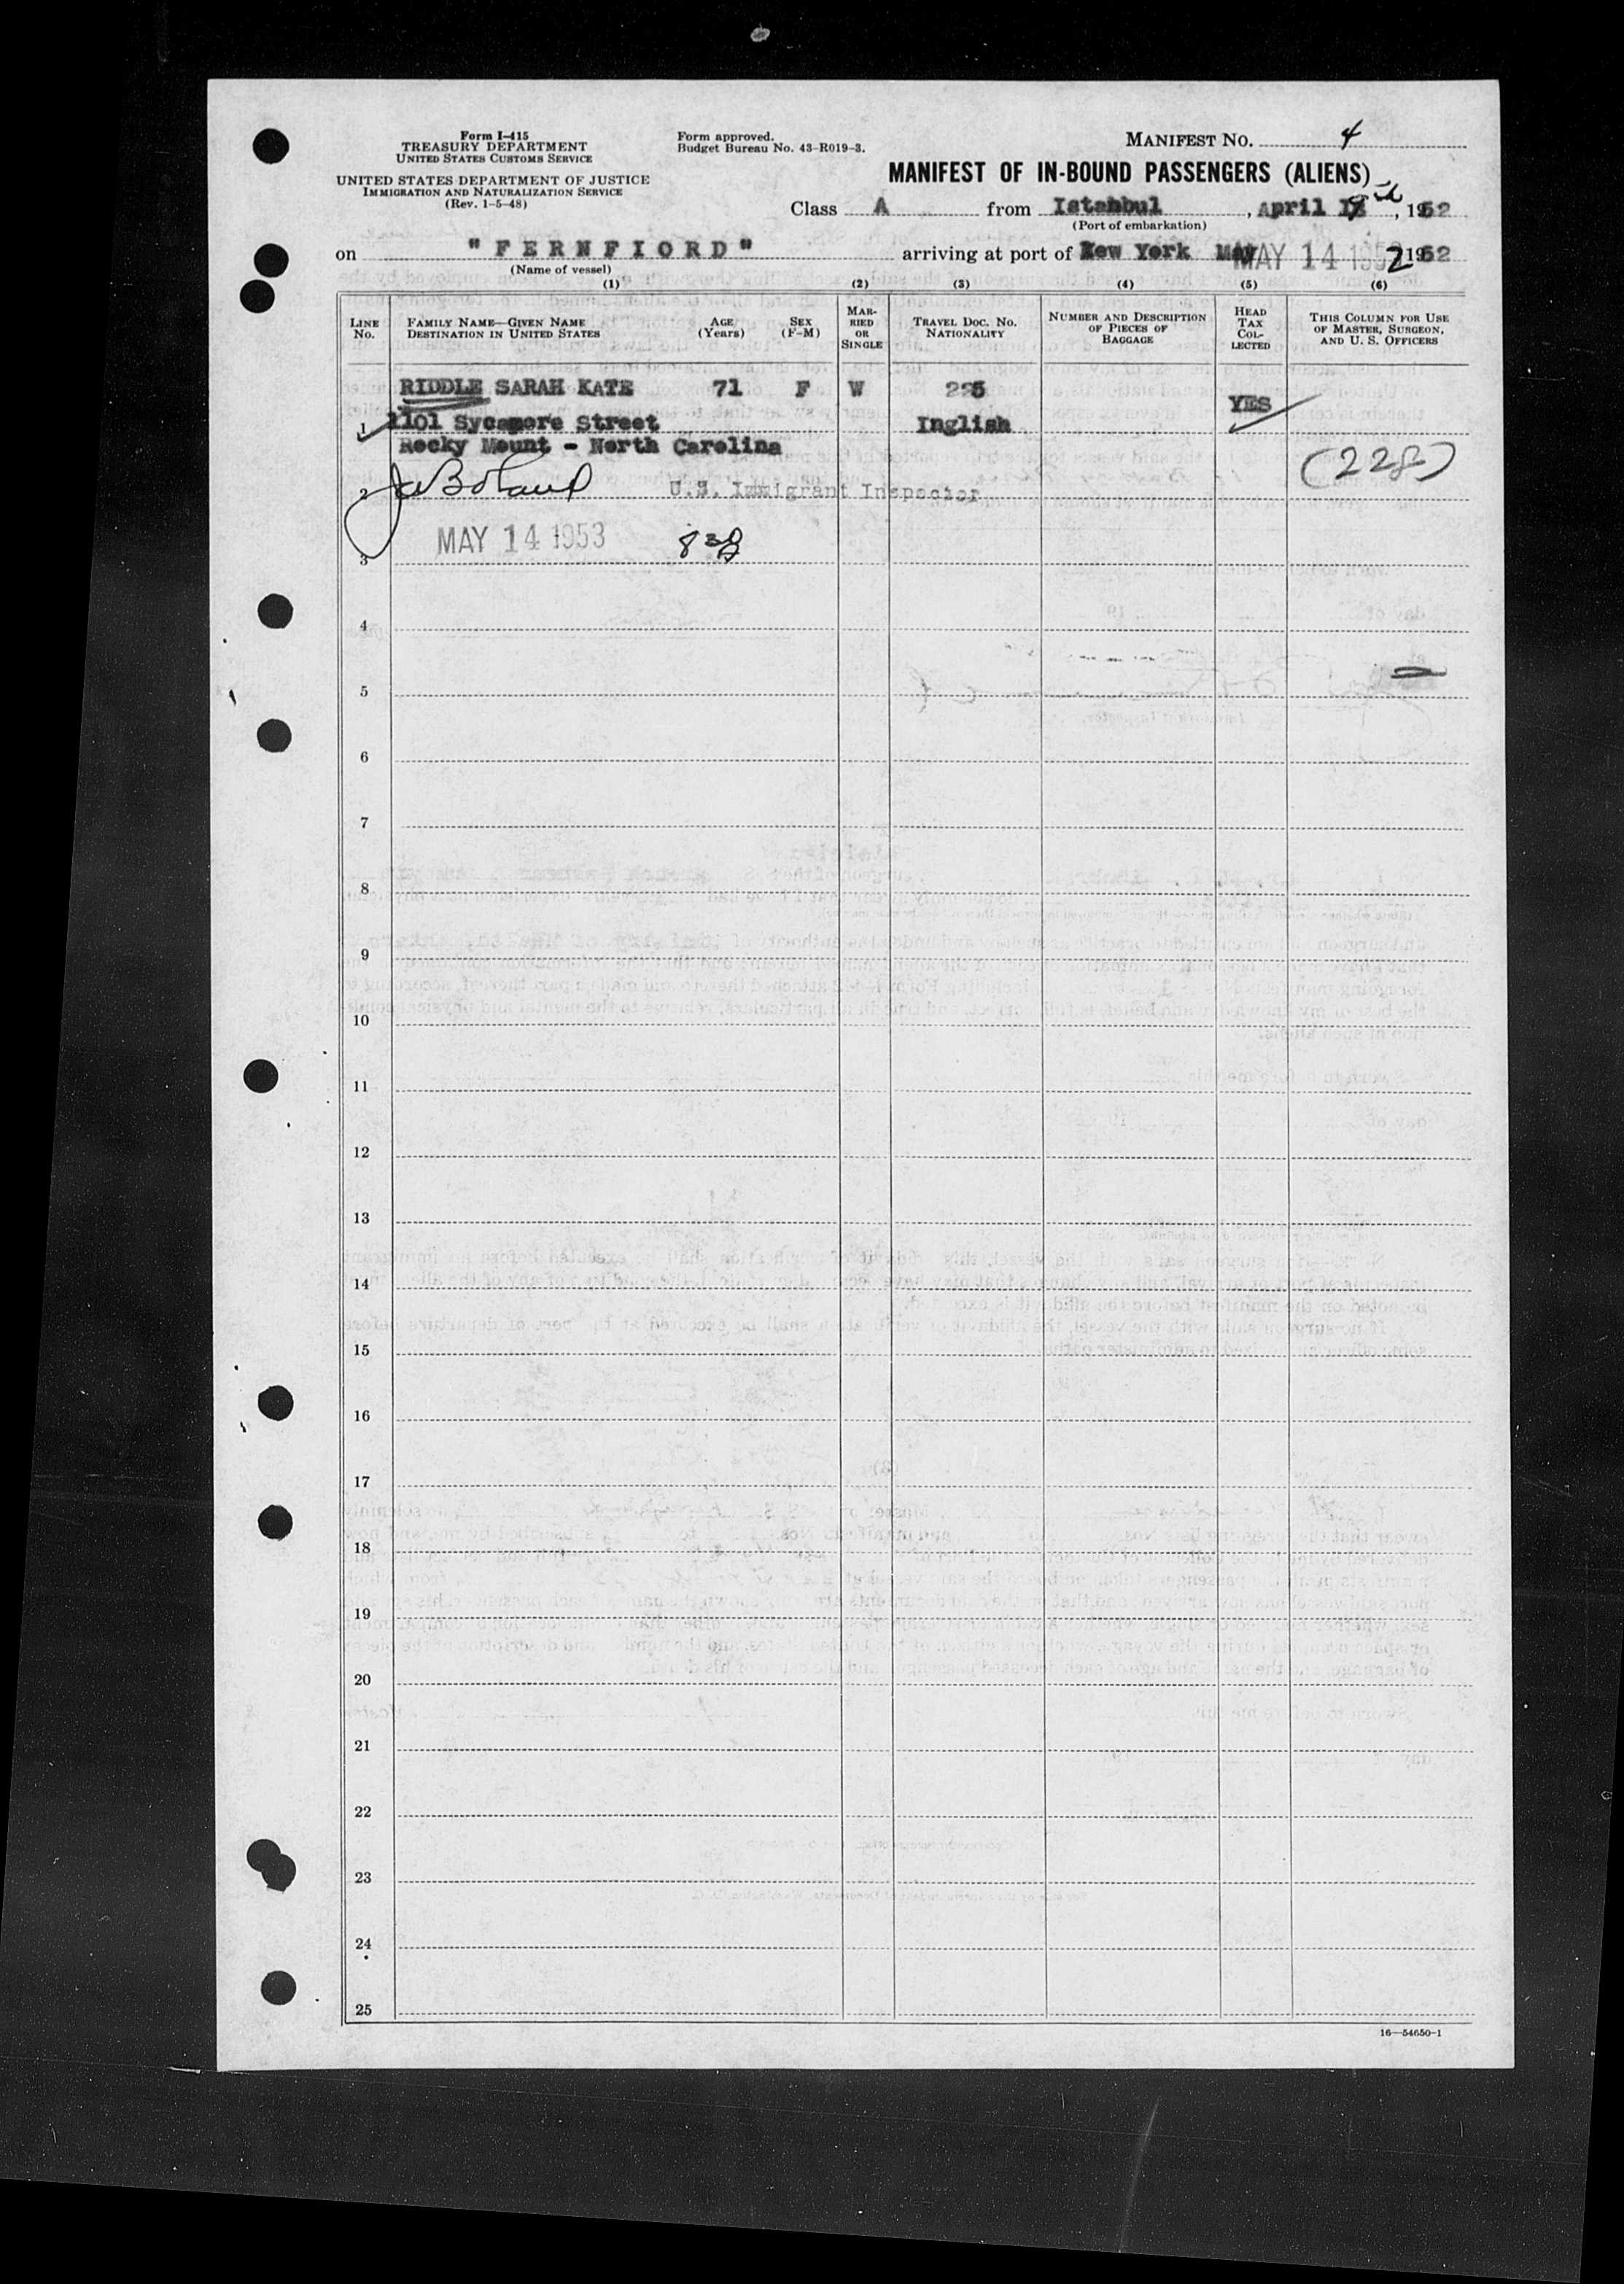 Form I-415
TREASURY DEPARTMENT
UNITED STATES CUSTOMS SERVICE
UNITED STATES DEPARTMENT OF JUSTICE
IMMIGRATION AND NATURALIZATION SERVICE
(Rev. 1-5-48)
Form approved.
Budget Bureau No. 43-R019-3.
MANIFEST NO. 4
MANIFEST OF IN-BOUND PASSENGERS (ALIENS)
Class A from Istanbul, April , 1952
(Port of embarkation)
on "FERNFIORD" arriving at port of New York May MAY 14 1952 1952
(Name of vessel)
(1) (2) (3) (4) (5) (6)
LINE No.
FAMILY NAME—GIVEN NAME
DESTINATION IN UNITED STATES
AGE (Years)
SEX (F-M)
MARRIED OR SINGLE
TRAVEL DOC. NO. NATIONALITY
NUMBER AND DESCRIPTION OF PIECES OF BAGGAGE
HEAD TAX COLLECTED
THIS COLUMN FOR USE OF MASTER, SURGEON, AND U. S. OFFICERS
RIDDLE SARAH KATE 71 F W 225 YES
1 1101 Sycamore Street Inglish
Rocky Mount - North Carolina
(228)
2 U.S. Immigrant Inspector
MAY 14 1953
3
4
5
6
7
8
9
10
11
12
13
14
15
16
17
18
19
20
21
22
23
24
25
16—54650-1